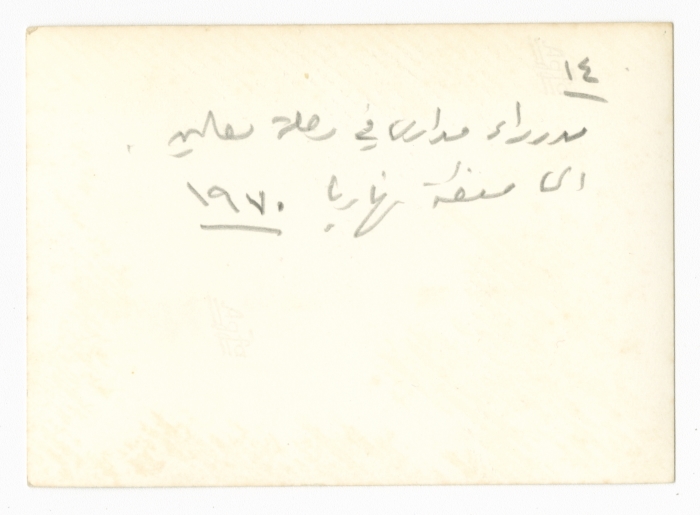 ١٤
مدراء مدارس في رحلة معلمين
الى منطقة نهاريا ١٩٧٠